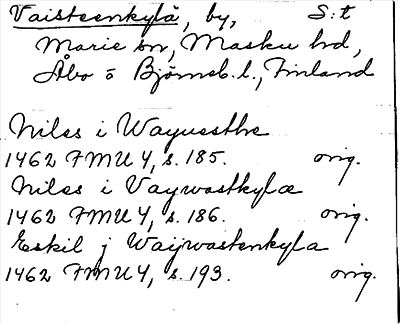 Vaisteenkylä, by, S:t
Marie sn, Masku hd,
Åbo o Björneb. l., Finland
Niles i Wayuesthe
1462 FMU 4, s. 185. orig.
Niles i Vaywastkylæ
1462 FMU 4, s. 186. orig.
Eskil j Waijwastenkyla
1462 FMU 4, s. 193. orig.